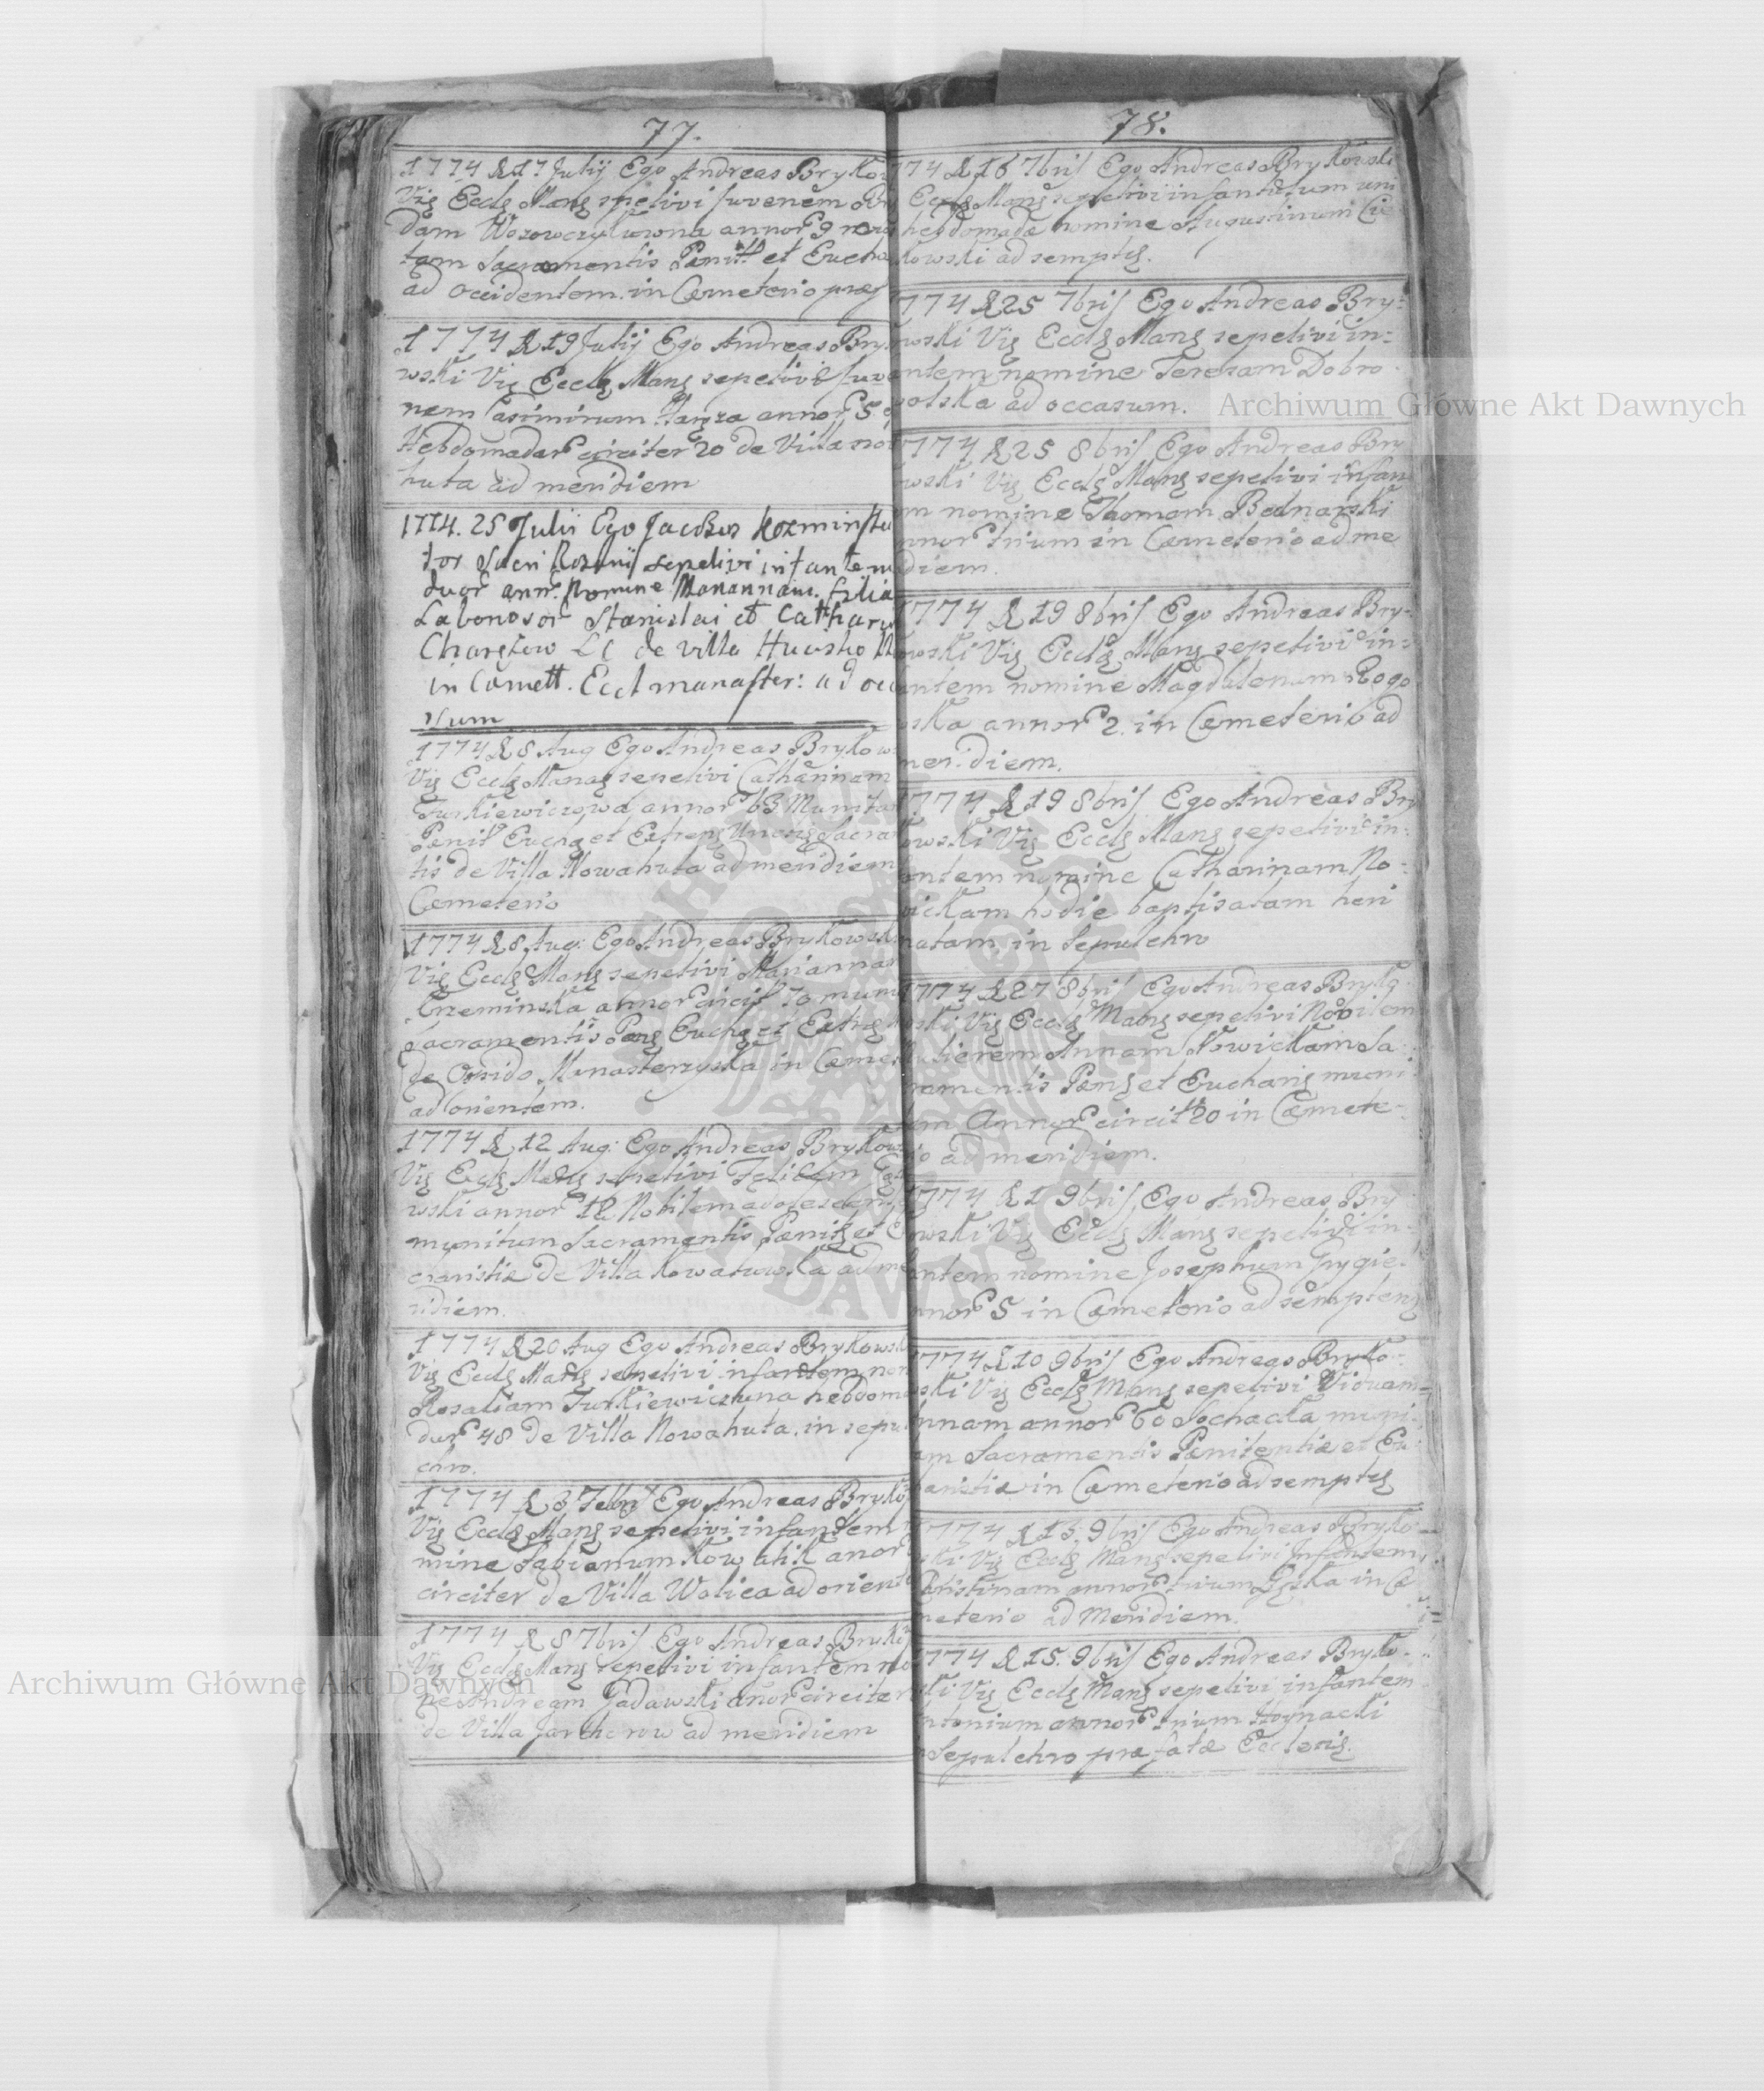 77.
1774 d 17 Julij Ego Andreas Bryko
Vig Eccls Mang sepelivi Juvenem
dam annor 9
tam Sacramentis Penit et Eucha
ad occidentem. in Cæmeterio præf
1774 d 19 Julij Ego Andreas Bry
wski Vig Eccls Mang sepelivi Juve
nem Casimirum annor 5
Hebdomadar circiter 20 de Villa no
huta ad meridiem
1774. 25 Julii Ego Jacobus
tor Sacri Rosarij sepelivi infantem
duor annr. Nomine Mariannam. filia
Laboriosor Stanislai et Cathari
de villa
in Cametr. Eccl manaster: ad occa
sum
1774 d 8 Aug Ego Andreas Brykow
Vig Eccls Manas sepelivi Catharinam
Turkiewiczowa annor 63 Munita
Penit Euchs et Extrems Unctis Sacra
tis de Villa Nowahuta ad meridiem
Cemeterio
1774 d 8 Aug: Ego Andreas Brykowsk
Vig Eccls Mang sepelivi Marianna
Krzeminska annor circit 70 mun
Sacramentis Pœng Euchs et Extres
de Oppido Monasterzyska in Cæme
ad Orientem.
1774 d 12 Aug: Ego Andreas Brykow
Vig Eccls Mang sepelivi Felicem
wski annor 12 Nobilem adolescen
munitum Sacramentis Pænits et E
charistiæ de Villa Kowatuwka ad me
ridiem.
1774 d 20 Aug Ego Andreas Brykowsk
Vig Eccls Mang sepelivi infantem nom
Rosaliam Turkiewiczuna hebdoma
dar 48 de Villa Nowahuta. in sepul
chro.
1774 d 3 7bris Ego Andreas Bryko
Vig Eccls Mang sepelivi infantem
mine Fabianum Kowalik anor
circiter de Villa Wolica ad oriente
1774 d 8 7bris Ego Andreas Bryko
Vig Eccls Mang sepelivi infantem no
ne Andream Gadawski anor circiter
de Villa ad meridiem
78.
774 d 16 7bris Ego Andreas Brykowski
Eccls Mang sepelivi infantulum uni
hebdomadæ nomine Augustinum Cie
kowski ad sempts.
774 d 25 7bris Ego Andreas Bry-
owski Vig Eccls Mang sepelivi in:
antem nomine Teresam Dobro
polska ad occasum.
774 d 25 8bris Ego Andreas Bry
wski Vig Eccls Mang sepelivi infan
m nomine Thomam Bednarski
nnor trium in Cæmeterio ad me
diem.
1774 d 19 8bris Ego Andreas Bry-
owski Vig Eccls Mang sepelivi in:
antem nomine Magdalenam Rogo
ska annor 2. in Cæmeterio ad
meridiem.
1774 d 19 8bris Ego Andreas Bry
owski Vig Eccls Mang sepelivi in:
antem nomine Catharinam No-
wickam hodie baptisatam heri
natam, in Sepulchro
1774 d 27 8bris Ego Andreas Bryko
ski Vig Eccls Mang sepelivi Nobilem
ulierem Annam Nowickam Sa
ramentis Pæng et Eucharis muni
m Annor circit 20 in Cæmete-
io ad meridiem.
1774 d 1 9bris, Ego Andreas Bry
owski Vig Eccls Mang sepelivi in-
antem nomine Josephum Grygiel
nnor 5 in Cæmeterio ad sempten
1774 d 10 9bris Ego Andreas Bryko-
ski Vig Eccls Mang sepelivi Viduam
nnam annor 60 Sochacka muni
am Sacramentis Pænitentiæ et Eu
haristiæ in Cæmeterio ad sempts
1774 d 13. 9bris Ego Andreas Bryko
ski Vig Eccls Mang sepelivi Infantem
hristinam annor trium in Cæ
meterio ad Meridiem.
1774 d 15. 9bris Ego Andreas Bryko-
ski Vig Eccls Mang sepelivi infantem
ntonium annor trium Hoynacki
Sepulchro præfatæ Ecclesis.
Archiwum Główne Akt Dawnych
Archiwum Główne Akt Dawnych